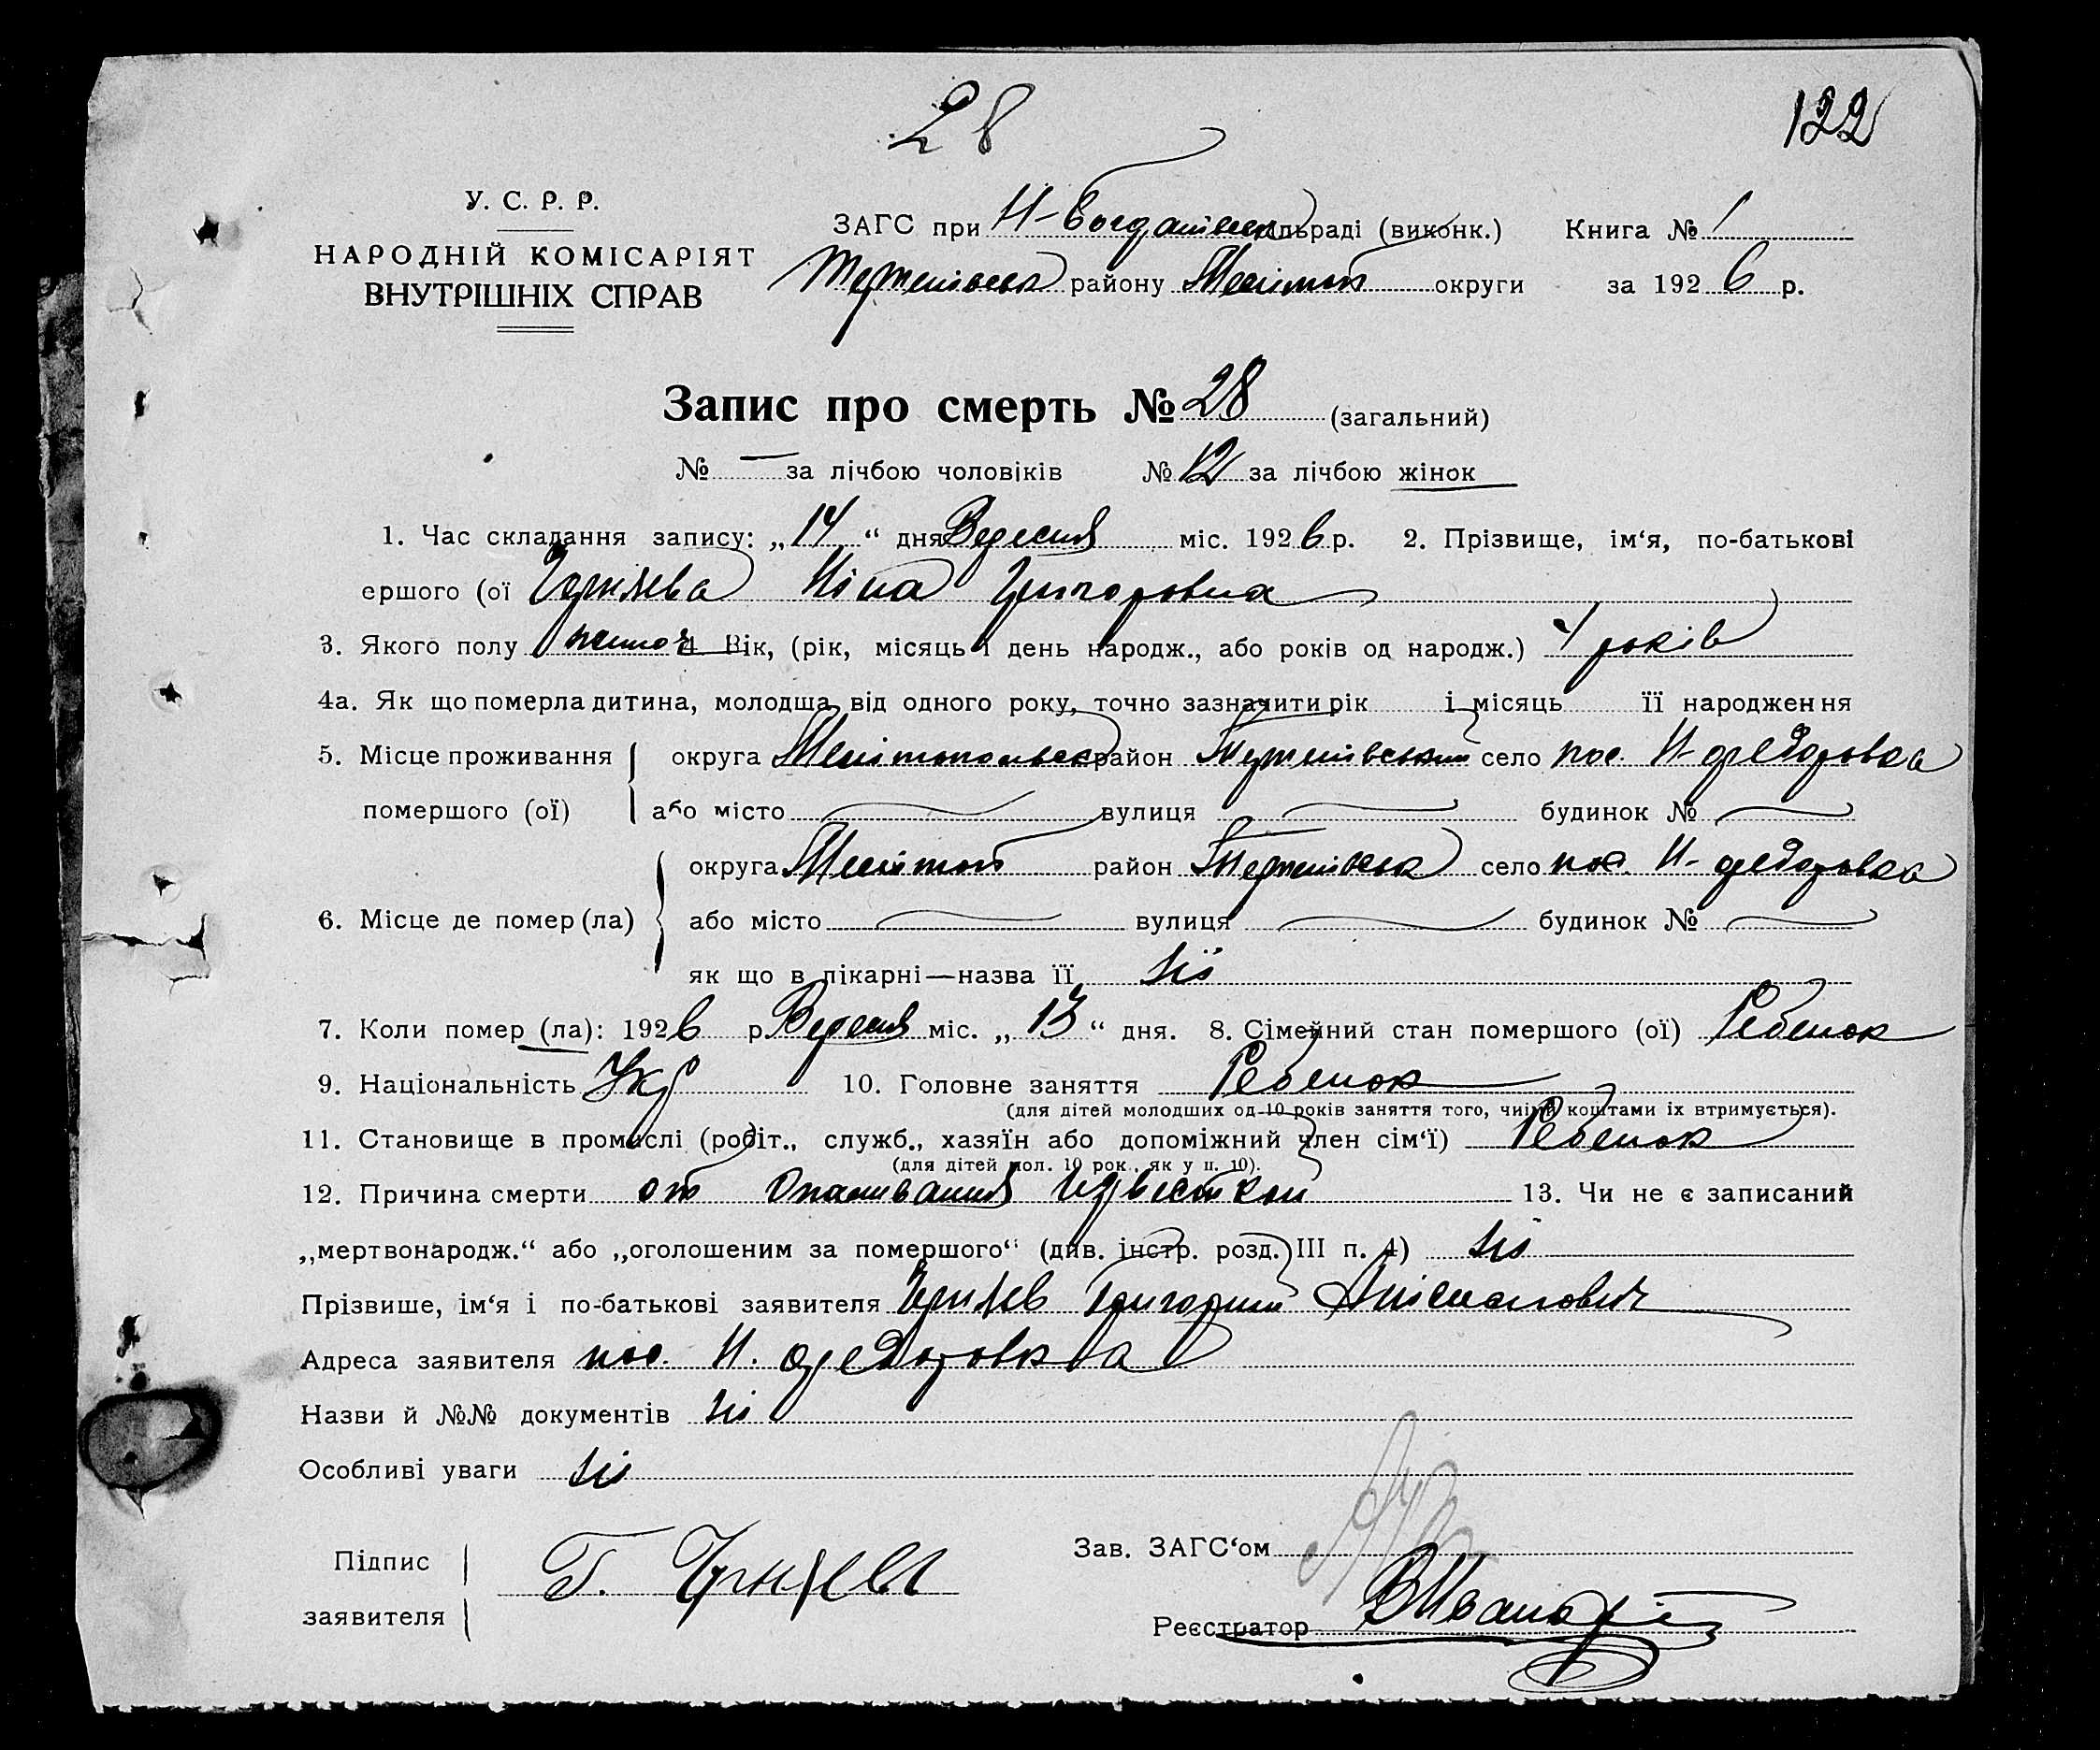 28
122
У. С. Р. Р.
НАРОДНІЙ КОМІСАРІЯТ
ВНУТРІШНІХ СПРАВ
ЗАГС при Н-Богданівськ ільраді (виконк.) Книга № 1
району Мелітоп округи за 1926 р.
Запис про смерть № 28 (загальний)
№ — за лічбою чоловіків № 12 за лічбою жінок
1. Час складання запису: „14“ дня Вересня міс. 1926 р. 2. Прізвище, ім‘я, по-батькові
ершого (ої Ніна Григоровна
3. Якого полу жіноч 4 Вік, (рік, місяць і день народж., або років од народж.) 4 років
4а. Як що померла дитина, молодша від одного року, точно зазначити рік і місяць її народження
5. Місце проживання округа Мелітопольськ район село пос. Н-Федоровка
помершого (ої) або місто вулиця будинок №
округа Мелітоп район село пос. Н-Федоровка
6. Місце де помер (ла) або місто вулиця будинок №
як що в лікарні—назва її ні
7. Коли помер (ла): 1926 р. Вересня міс. „13“ дня. 8. Сімейний стан помершого (ої) Ребенок
9. Національність Укр 10. Головне заняття Ребенок
(для дітей молодших од 10 років заняття того, чиїми коштами їх втримується).
11. Становище в промислі (робіт., служб., хазяїн або допоміжний член сім‘ї) Ребенок
(для дітей мол. 10 рок., як у п. 10).
12. Причина смерти от Опаливания Известкой 13. Чи не є записаний
„мертвонародж.“ або „оголошеним за помершого“ (див. інстр. розд. III п. 4) ні
Прізвище, ім‘я і по-батькові заявителя Григорий
Адреса заявителя пос. Н. Федоровка
Назви й №№ документів ні
Особливі уваги ні
Підпис
заявителя Г.
Зав. ЗАГС‘ом
Реєстратор